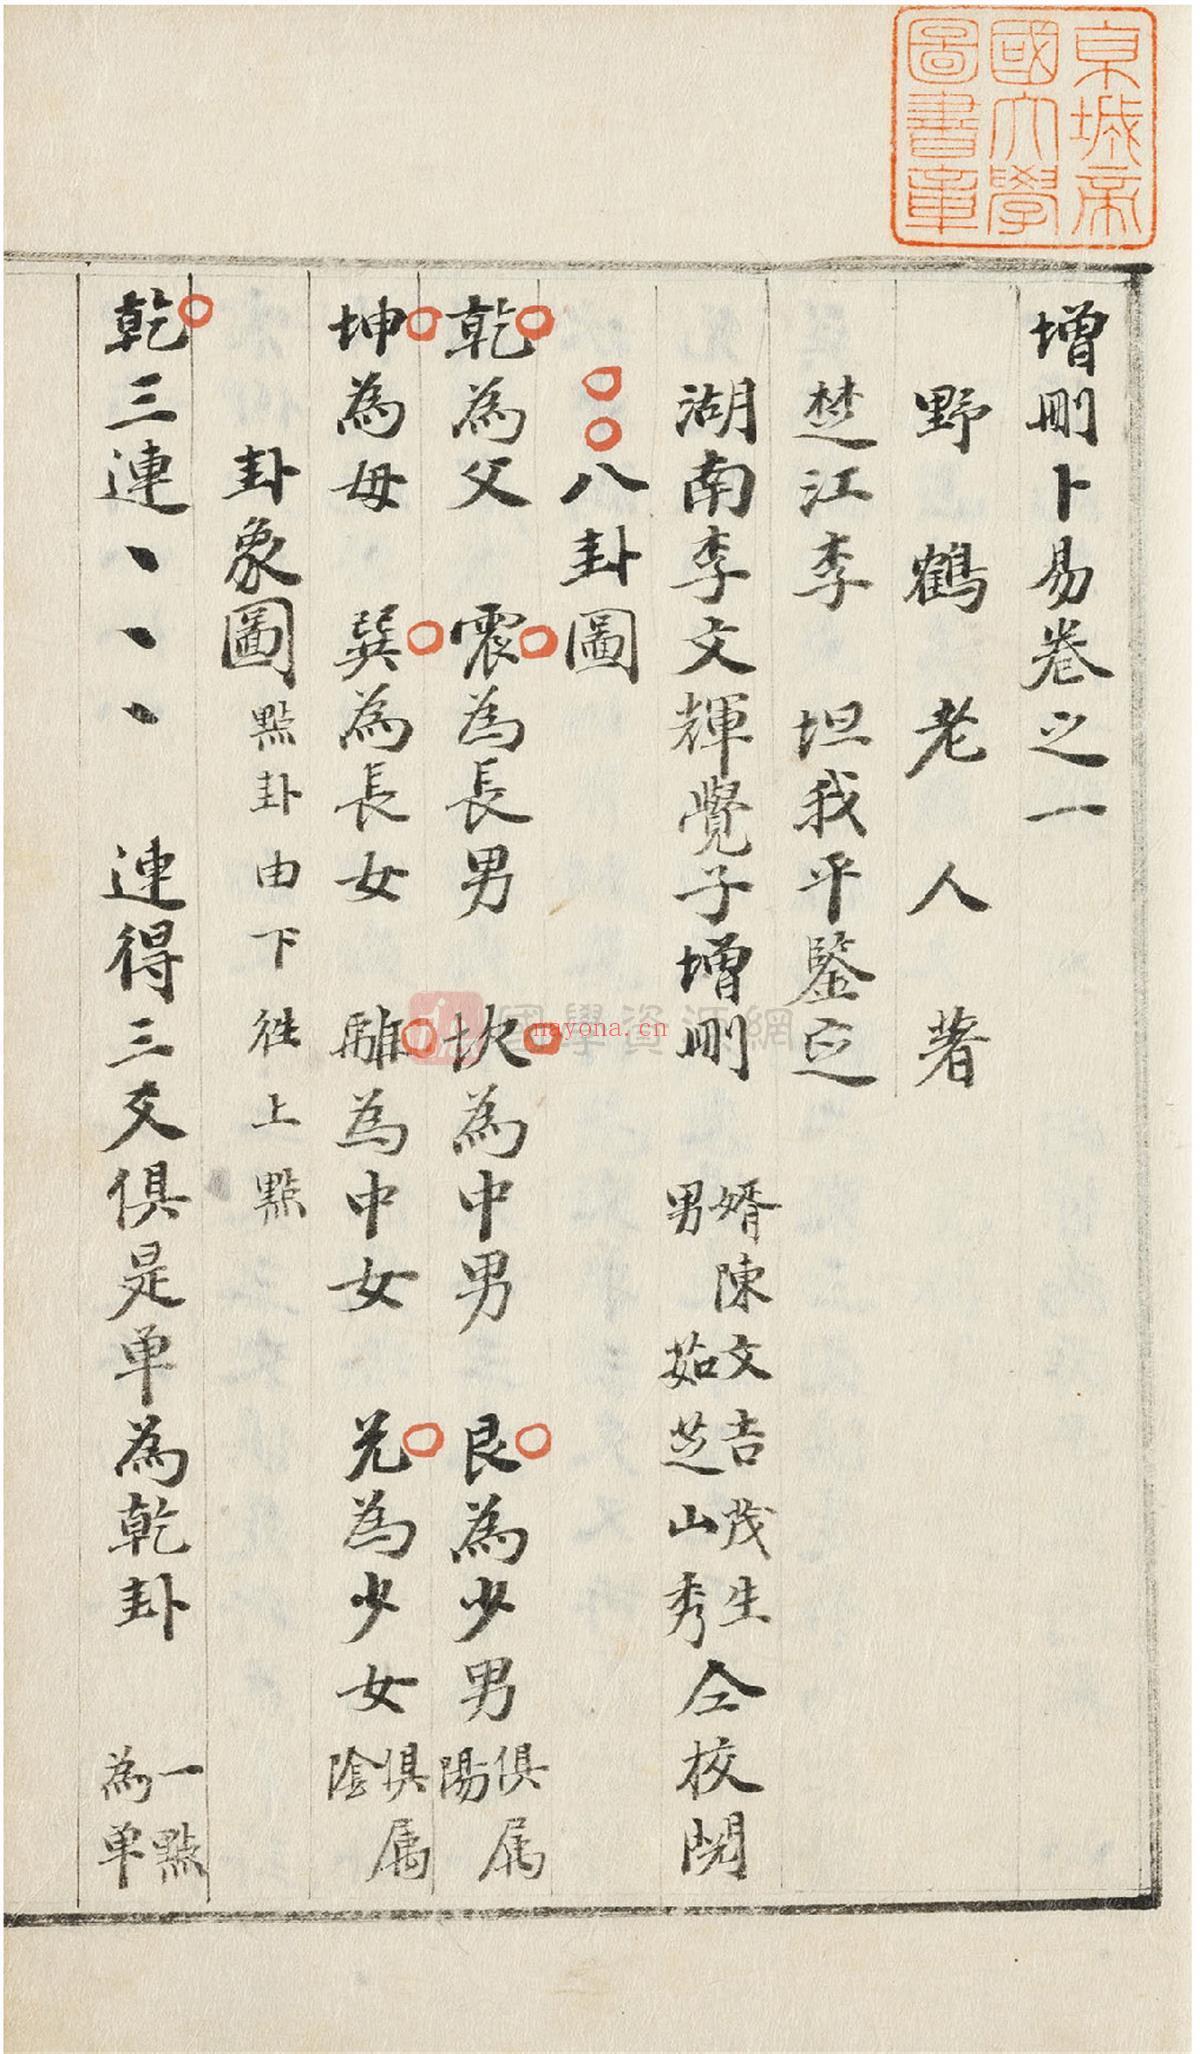 京城帝
國大學
圖書章
增刪卜易卷之一
野鶴老人著
楚江李 坦我平鑒定
湖南李文輝覺子增刪 婿陳文吉茂生 男 茹芝山秀 仝校閱
八卦圖
乾為父 震為長男 坎為中男 艮為少男 俱属陽
坤為母 巽為長女 離為中女 兌為少女 俱属陰
卦象圖 點卦由下徃上點
乾三連丶丶丶 連得三爻俱是单為乾卦 一點為单
國學資源網
nayona.cn